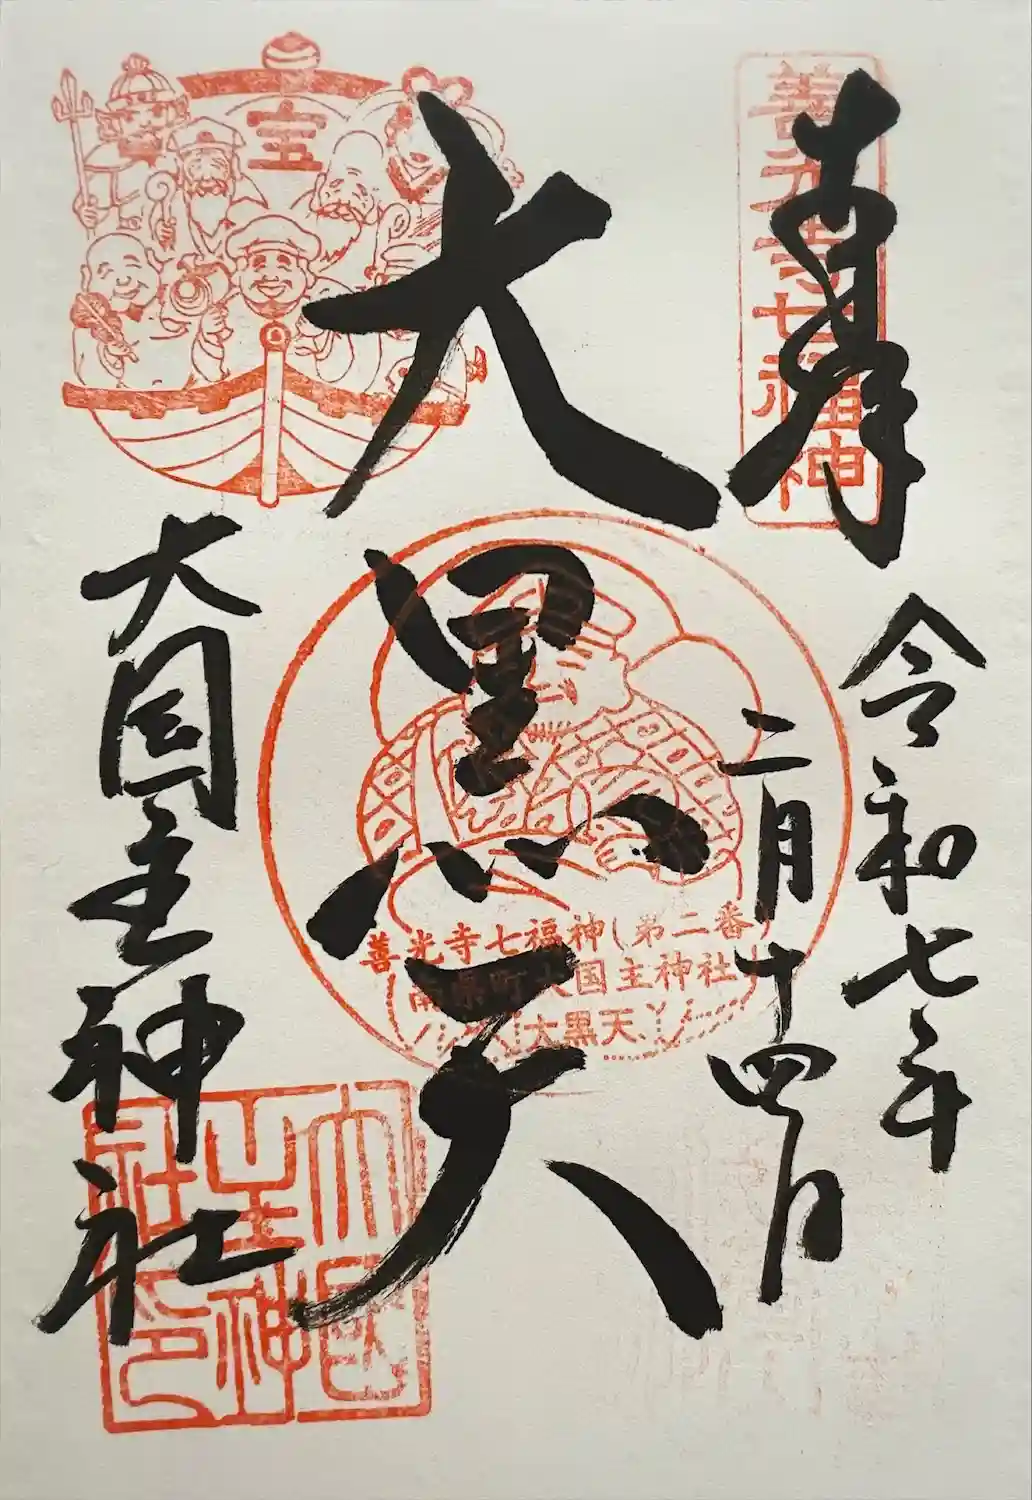 善光寺七福神
奉拝
令和七年
二月十四日
宝
大黒天
善光寺七福神(第二番)
南県町大国主神社
大黒天
大国主神社
大國
主神
社印